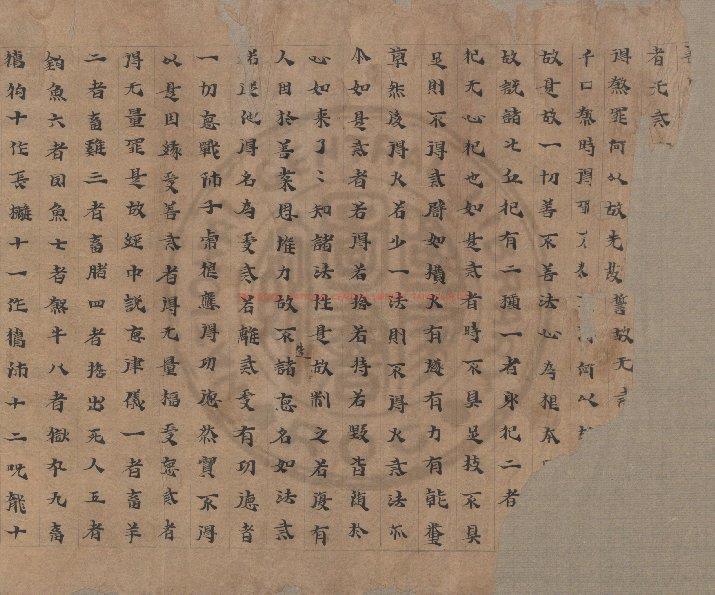 者无戒
得煞罪何以故先發誓故无
千口煞時得罪 何以
故是故一切善不善法心為根本
故說諸比丘犯有二種一者身犯二者
犯无心犯也如是戒者時不具足枝不具
足則不得戒譬如攢火有燧有力有乾糞
草然後得火若少一法則不得火戒法亦
尒如是戒者若得若捨若持若毀皆隨於
心如來了〻知諸法性是故制之若復有
人因於善業思惟力故不作諸惡名如法戒
若從他得名為受戒若離戒受有功德者
一切惡戰師子虎狼應得功德然實不得
以是因緣受善戒者得无量福受惡戒者
得无量罪是故經中說惡律儀一者畜羊
二者畜雞三者畜豬四者擔出死人五者
釣魚六者罔魚七者煞牛八者獄卒九畜
獦狗十作長摾十一作獦師十二呪龍十